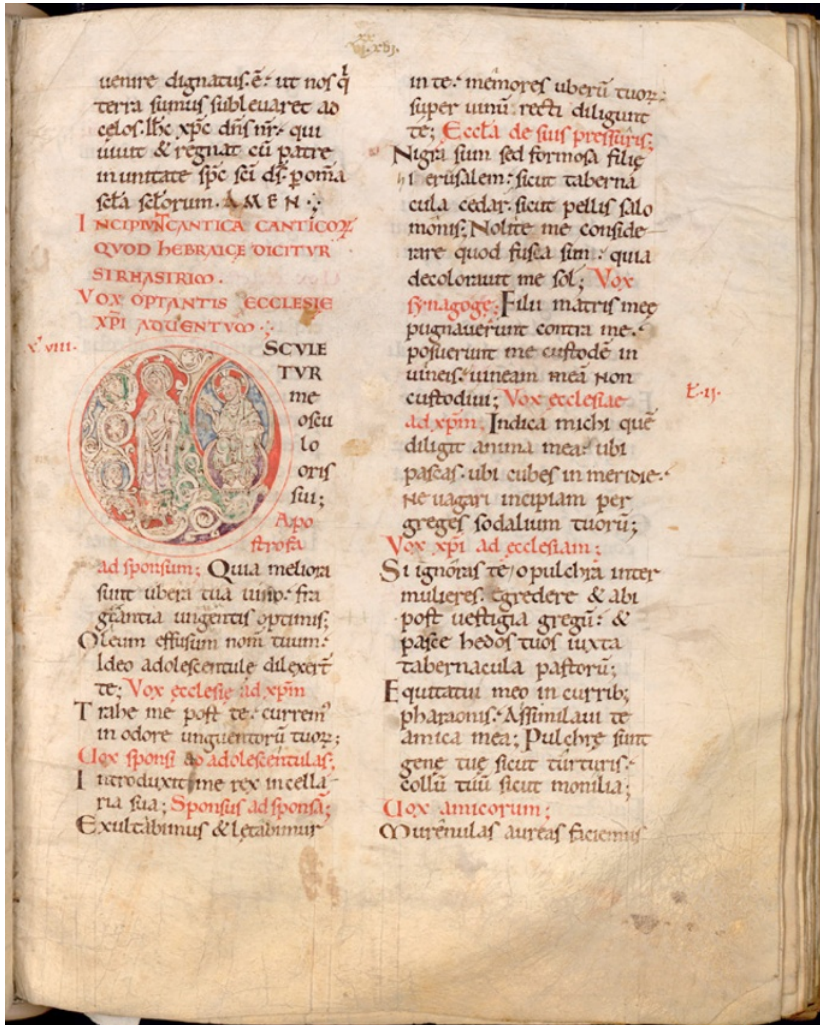 uenire dignatus. ē: ut nos q
terra sumus subleuaret ad
celos. Ihc xp̄c dn̄s nr̄: qui
uiuit & regnat cū patre
in unitate sp̄c sc̄i ds̄. p om̄a
sc̄la sc̄lorum. AMEN.
INCIPIUNT CANTICA CANTICOꝜ
QVOD HEBRAICE DICITVR
SIRHASIRIM.
VOX OPTANTIS ECCLESIE
XP̄I ADUENTVM
SCVLE
TVR
me
oscu
lo
oris
sui;
Apo
strofa
ad sponsum; Quia meliora
sunt ubera tua uino: fra
grantia ungentis optimis;
Oleum effusum nom̄ tuum:
Ideo adolescentulę dilexert̄
te; Vox ecclesię ad xp̄m
Trahe me post te: currem̄
in odore unguentorū tuoꝝ;
Uox sponsi ad adolescentulas;
Introduxit me rex in cella
ria sua; Sponsus ad sponsā;
Exultabimus & lętabimur
in te: memores uberū tuoꝝ:
super uinū. recti diligunt
te; Eccl̄a de suis pressuris;
Nigra sum sed formosa filię
ierusalem: sicut taberna
cula cedar. sicut pellis salo
monis; Nolite me conside
rare quod fusca sim: quia
decolorauit me sol; Vox
synagogę; Filii matris meę
pugnauerunt contra me:
posuerunt me custodē in
uineis: uineam meā non
custodiui; Vox ecclesiae
ad xp̄m; Indica michi quē
diligit anima mea: ubi
pascas. ubi cubes in meridie:
Ne uagari incipiam per
greges sodalium tuorū;
Vox xp̄i ad ecclesiam;
Si ignoras te o pulchra inter
mulieres. egredere & abi
post uestigia gregū: &
pasce hedos tuos iuxta
tabernacula pastorū;
Equitatui meo in currib;
pharaonis: Assimilaui te
amica mea; Pulchrę sunt
genę tuę sicut turturis:
collū tuū sicut monilia;
Uox amicorum;
Murenulas aureas faciemus